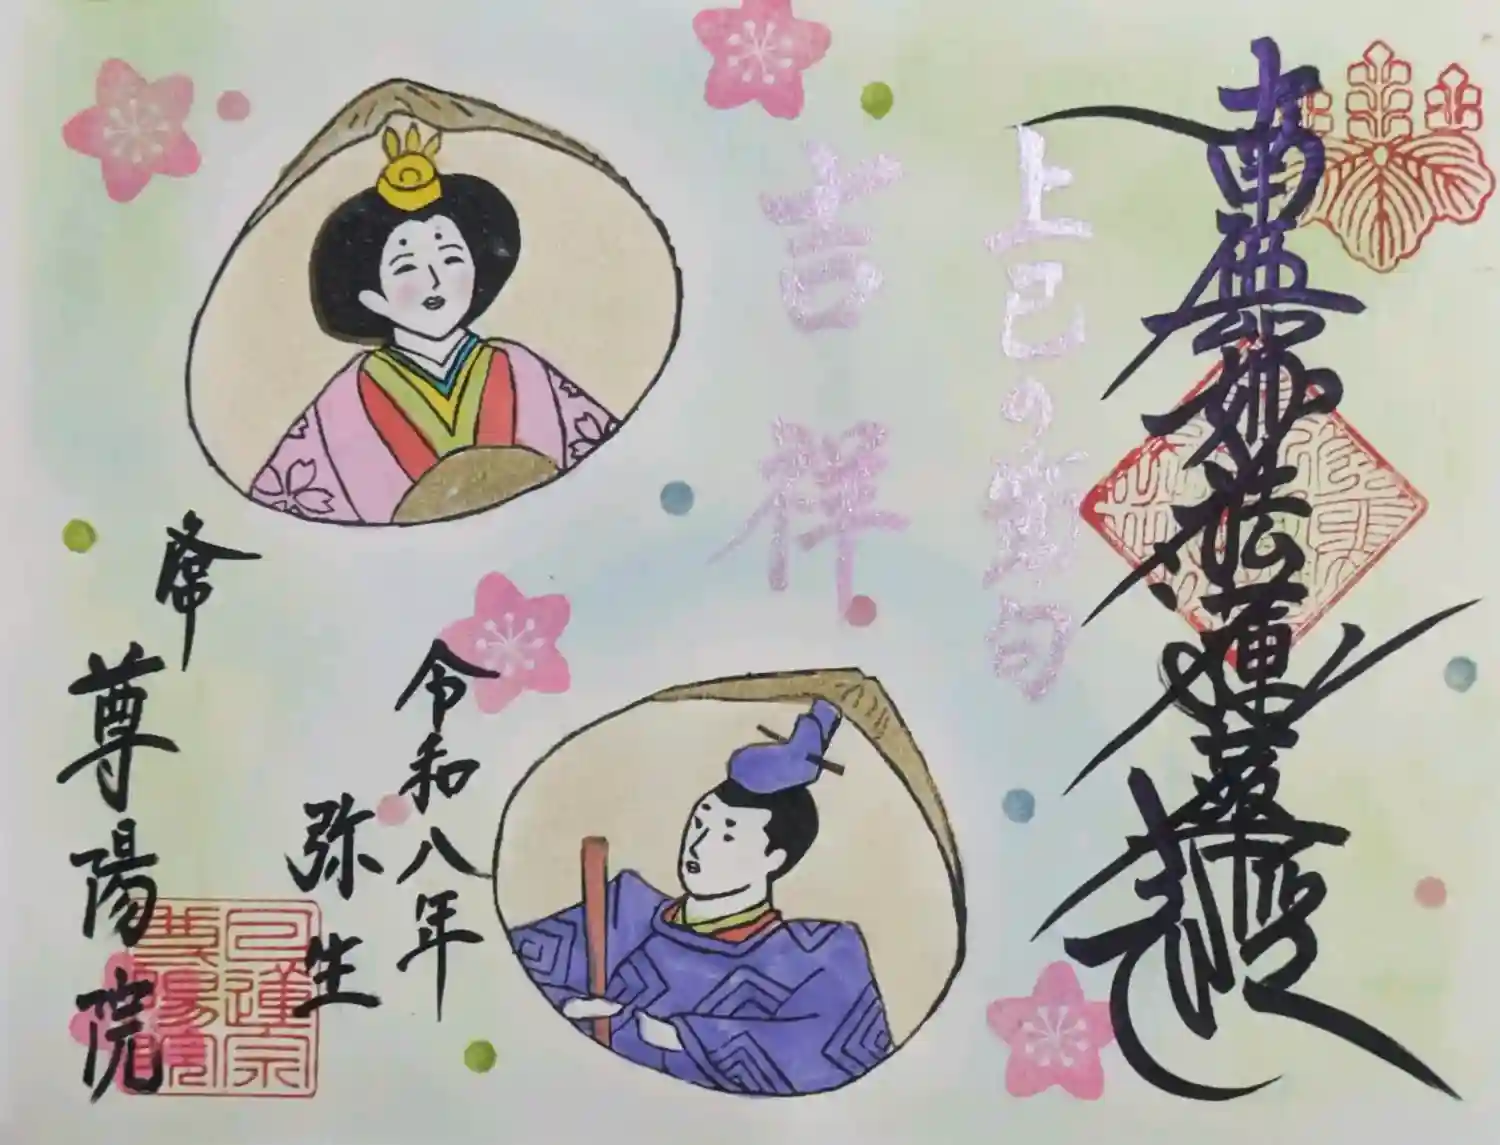 南無妙法蓮華経
上巳の節句
吉祥
令和八年
弥生
尊陽院
日蓮宗
尊陽院